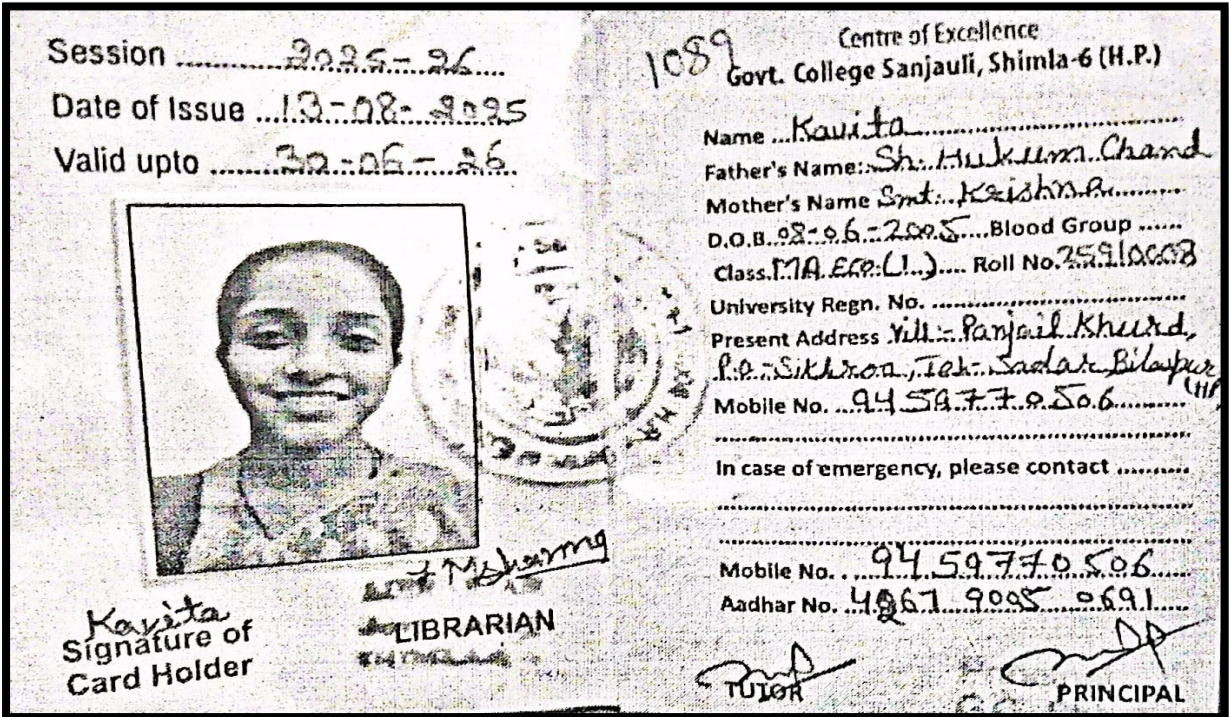 Session ....2025-26....
Date of Issue ...13-08-2025
Valid upto ....30-06-26....
Kavita
Signature of
Card Holder
M Sharma
LIBRARIAN
1089
Centre of Excellence
Govt. College Sanjauli, Shimla-6 (H.P.)
Name ...Kavita....
Father's Name: Sh. Hukum Chand
Mother's Name Smt. Krishna....
D.O.B. 08-06-2005....Blood Group ......
Class. MA. Eco. (I..).... Roll No. 25910008
University Regn. No. ....
Present Address Vill:- Panjail Khurd,
P.O.-Sikhron, Teh- Sadar Bilaspur
(HP)
Mobile No. ...9459770506....
In case of emergency, please contact ..........
Mobile No. ...9459770506....
Aadhar No. 4267 9005 0691
TUTOR
PRINCIPAL